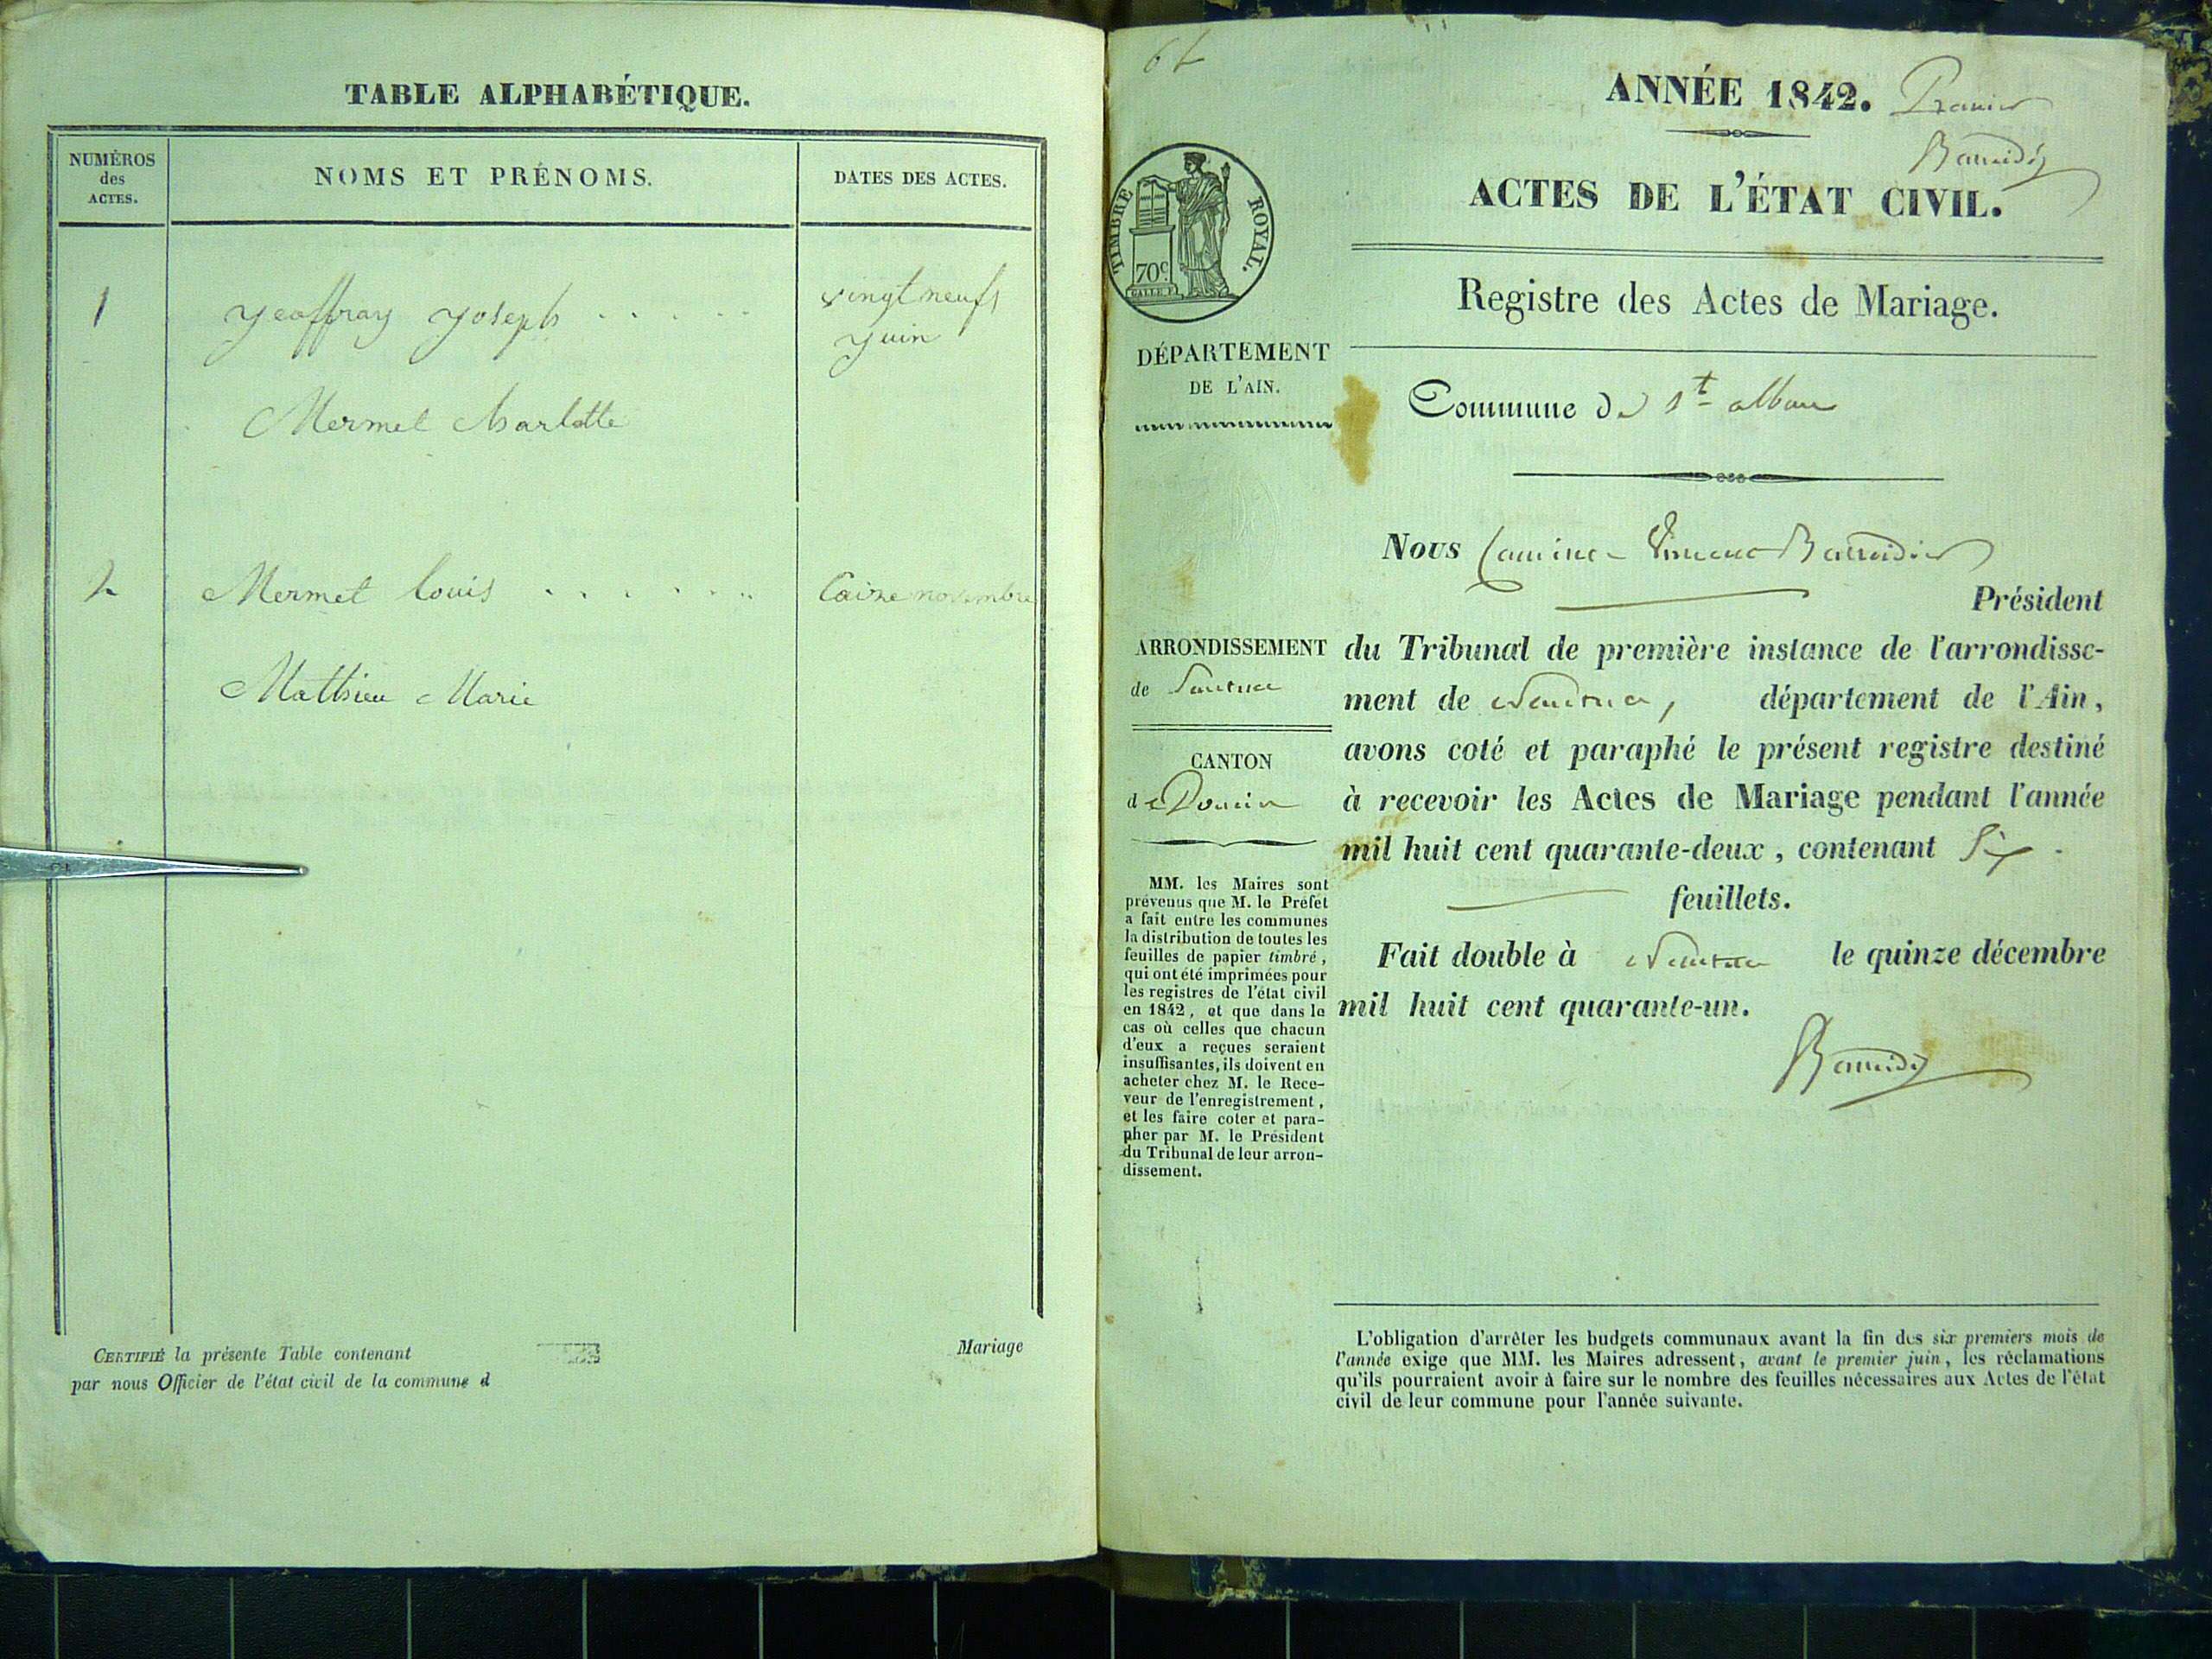 TABLE ALPHABÉTIQUE.
NUMÉROS
des
ACTES.
NOMS ET PRÉNOMS.
DATES DES ACTES.
1
Yeoffray Yoseph . . . . . .
vingt neufs
yuin
Mermet Charlotte
2
Mermet Louis . . . . . . .
novembre
Mathieu Marie
CERTIFIÉ la présente Table contenant
par nous Officier de l'état civil de la commune d
Mariage
ANNÉE 1842. Premier
ACTES DE L'ÉTAT CIVIL.
TIMBRE ROYAL.
70c.
Registre des Actes de Mariage.
DÉPARTEMENT
DE L'AIN.
Commune de St alban
Nous
Président
ARRONDISSEMENT
de Nantua
CANTON
de Poncin
du Tribunal de première instance de l'arrondisse-
ment de Nantua, département de l'Ain,
avons coté et paraphé le présent registre destiné
à recevoir les Actes de Mariage pendant l'année
mil huit cent quarante-deux, contenant Six
feuillets.
Fait double à Nantua le quinze décembre
mil huit cent quarante-un.
MM. les Maires sont
prévenus que M. le Préfet
a fait entre les communes
la distribution de toutes les
feuilles de papier timbré,
qui ont été imprimées pour
les registres de l'état civil
en 1842, et que dans le
cas où celles que chacun
d'eux a reçues seraient
insuffisantes, ils doivent en
acheter chez M. le Rece-
veur de l'enregistrement,
et les faire coter et para-
pher par M. le Président
du Tribunal de leur arron-
dissement.
L'obligation d'arrêter les budgets communaux avant la fin des six premiers mois de
l'année exige que MM. les Maires adressent, avant le premier juin, les réclamations
qu'ils pourraient avoir à faire sur le nombre des feuilles nécessaires aux Actes de l'état
civil de leur commune pour l'année suivante.